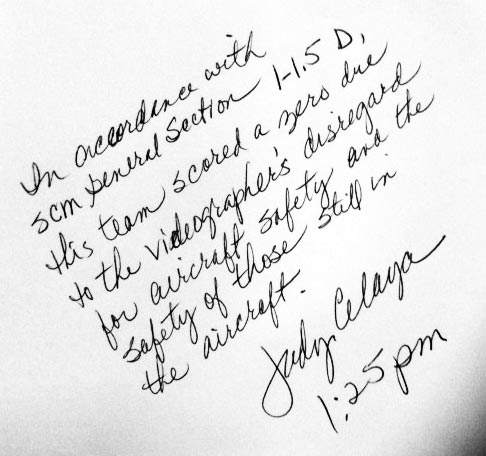 In accordance with
SCM General Section 1-1.5 D,
this team scored a zero due
to the videographer's disregard
for aircraft safety and the
safety of those still in
the aircraft.
Judy Celaya
1:25 pm